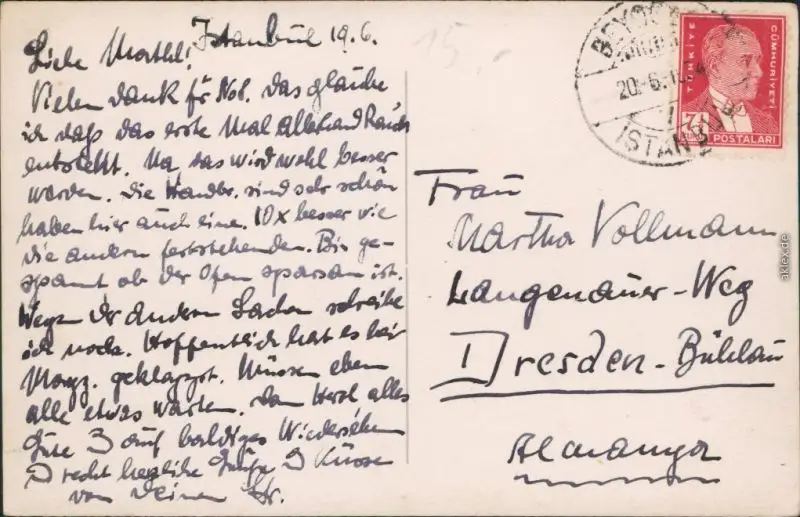 Istanbul 19.6.
Liebe Marthl!
Vielen Dank für No8. das glaube
ich daß das erste Mal allerhand Rauch
entsteht. Na, das wird wohl besser
werden. Die Handbr. sind sehr schön
haben hier auch eine. 10x besser wie
die andern feststehenden. Bin ge-
spannt ob der Ofen sparsam ist.
Wegen der andern Sachen schreibe
ich noch. Hoffentlich hat es bei
geklappt. Müssen eben
alle etwas warten. Dem alles
Gute & auf baldiges Wiedersehen
& recht herzliche Grüße & Küsse
von Deinem
15.-
BEYOĞLU
20.-6.
ISTANBUL
TÜRKİYE
CÜMHURİYETİ
POSTALARI
Frau
Martha Vollmann
Langenauer-Weg
Dresden-Bühlau
Almanya
akpool.de